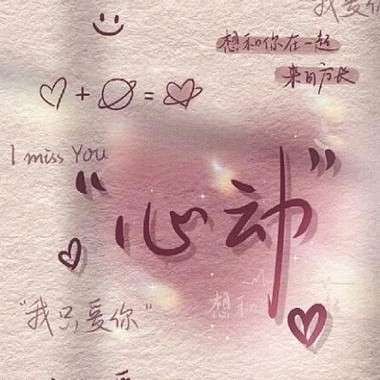 我爱你
想和你在一起
来日方长
I miss You
"心动"
想和
"我只爱你"